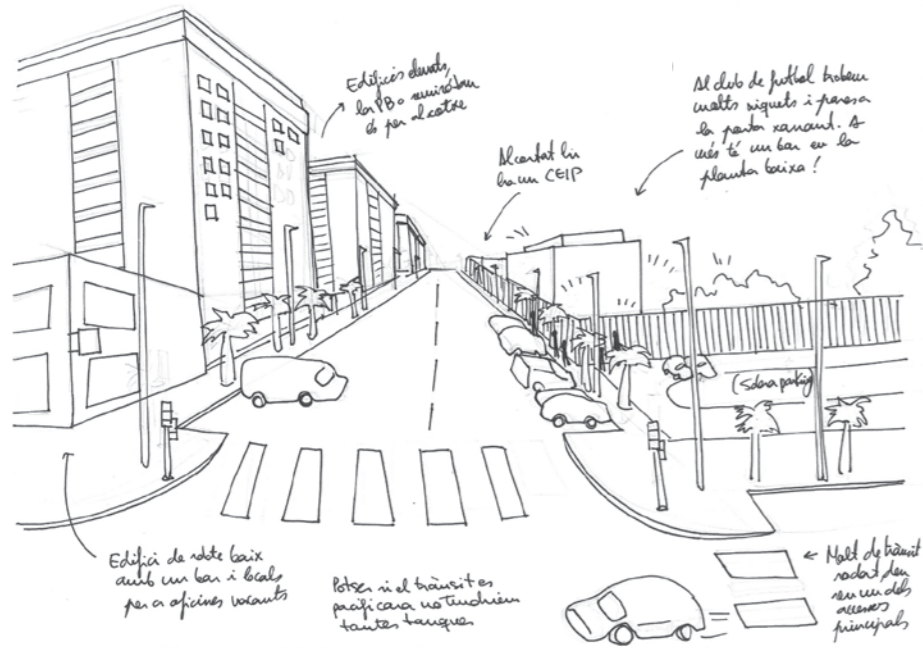 Edificis elevats,
les PB o semisòtan
és per al cotxe
Al costat hi
ha un CEIP
Al club de futbol trobem
molts xiquets i pares a
la porta xarrant. A
més té un bar en la
planta baixa!
(Solera parking)
Edifici de sostre baix
amb un bar i locals
per a oficines vacants
Potser si el trànsit es
pacificara no tindriem
tantes tanques
Molt de trànsit
rodat, deu
ser un dels
accesos
principals